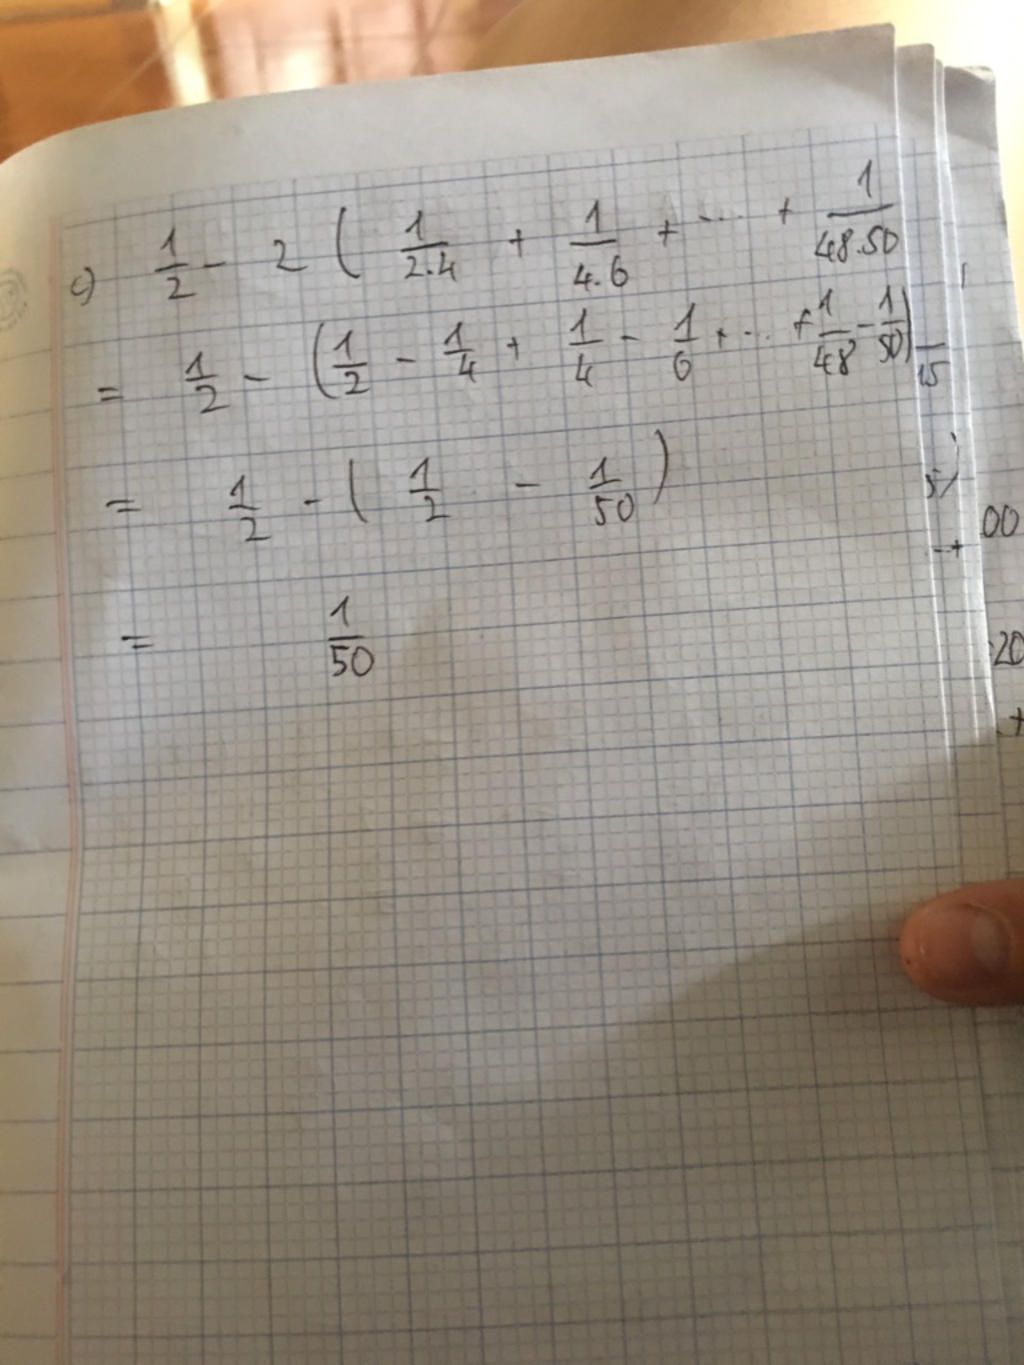 c) 1/2 - 2 ( 1/2.4 + 1/4.6 + ... + 1/48.50
= 1/2 - (1/2 - 1/4 + 1/4 - 1/6 + ... + 1/48 - 1/50)
= 1/2 - ( 1/2 - 1/50 )
= 1/50
15
5)
00
-+
20
+